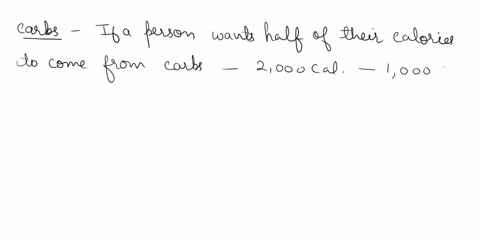 carbs - If a person wants half of their calories
to come from carbs - 2,000 cal. - 1,000